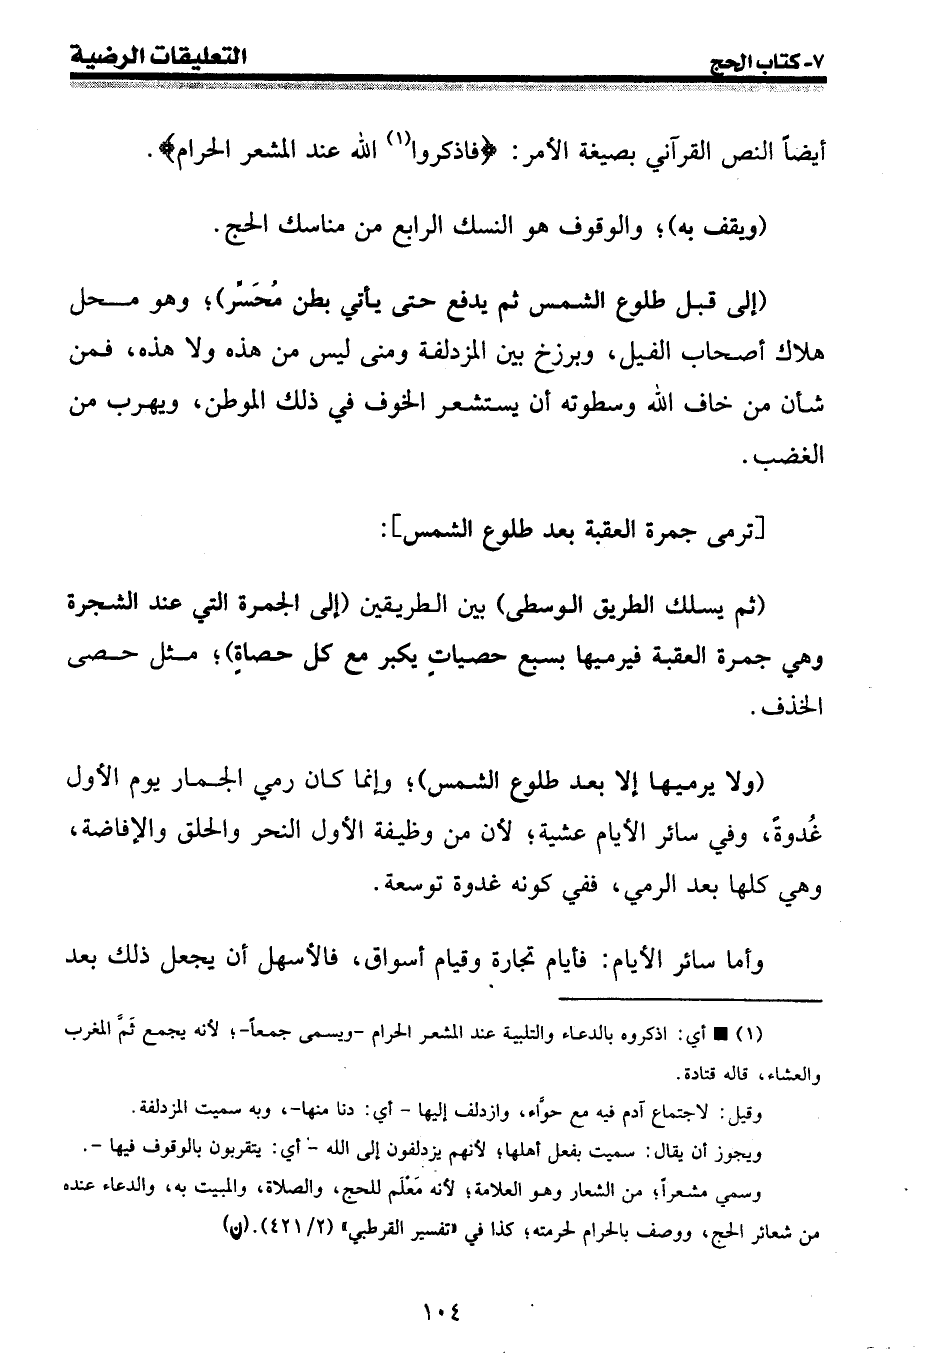 ٧- كتاب الحج
التعليقات الرضية
أيضاً النص القرآني بصيغة الأمر: ﴿فاذكروا(١) الله عند المشعر الحرام﴾.
(ويقف به)؛ والوقوف هو النسك الرابع من مناسك الحج.
(إلى قبل طلوع الشمس ثم يدفع حتى يأتي بطن مُحَسِّر)؛ وهو محل
هلاك أصحاب الفيل، وبرزخ بين المزدلفة ومنى ليس من هذه ولا هذه، فمن
شأن من خاف الله وسطوته أن يستشعر الخوف في ذلك الموطن، ويهرب من
الغضب.
[ترمى جمرة العقبة بعد طلوع الشمس]:
(ثم يسلك الطريق الوسطى) بين الطريقين (إلى الجمرة التي عند الشجرة
وهي جمرة العقبة فيرميها بسبع حصياتٍ يكبر مع كل حصاةٍ)؛ مثل حصى
الخذف.
(ولا يرميها إلا بعد طلوع الشمس)؛ وإنما كان رمي الجمار يوم الأول
غُدوةً، وفي سائر الأيام عشية؛ لأن من وظيفة الأول النحر والحلق والإفاضة،
وهي كلها بعد الرمي، ففي كونه غدوة توسعة.
وأما سائر الأيام: فأيام تجارة وقيام أسواق، فالأسهل أن يجعل ذلك بعد
(١) ■ أي: اذكروه بالدعاء والتلبية عند المشعر الحرام -ويسمى جمعاً-؛ لأنه يجمع ثَمَّ المغرب
والعشاء، قاله قتادة.
وقيل: لاجتماع آدم فيه مع حوَّاء، وازدلف إليها - أي: دنا منها-، وبه سميت المزدلفة.
ويجوز أن يقال: سميت بفعل أهلها؛ لأنهم يزدلفون إلى الله - أي: يتقربون بالوقوف فيها -.
وسمي مشعراً؛ من الشعار وهو العلامة؛ لأنه مَعْلَم للحج، والصلاة، والمبيت به، والدعاء عنده
من شعائر الحج، ووصف بالحرام لحرمته؛ كذا في «تفسير القرطبي» (٢/ ٤٢١).(ن)
١٠٤